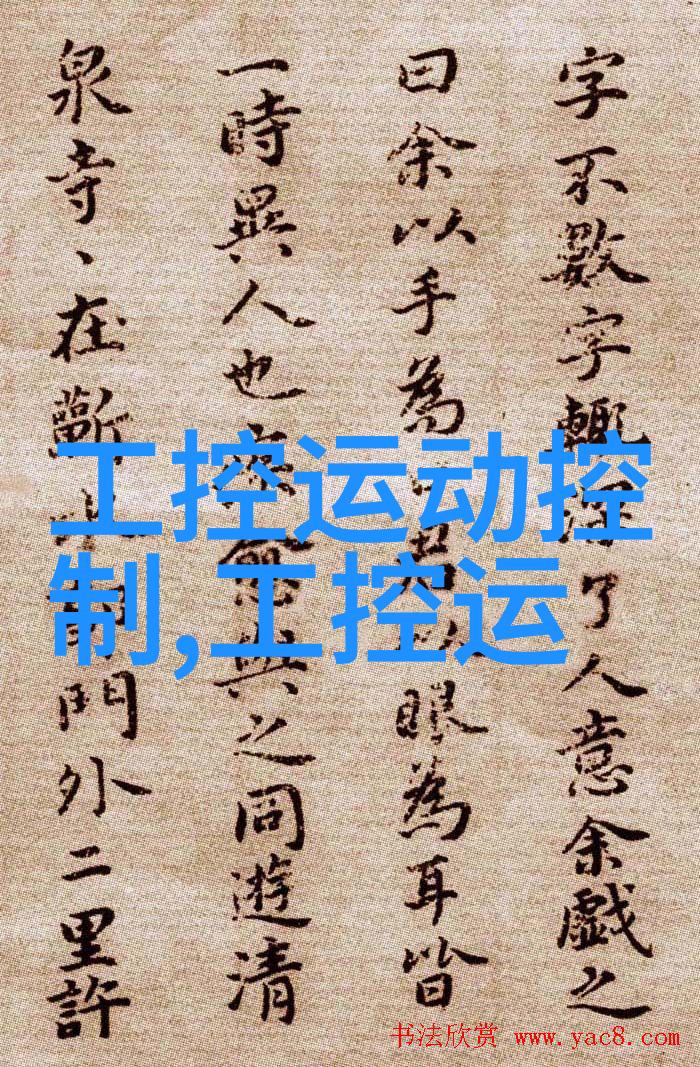 字不數字輒深了人意余戲之
曰余以手為君以眼為耳皆
一時異人也疾愈與之同遊清
泉寺、在蘄水門外二里許
工控运动控
制,工控运
书法欣赏 www.yac8.com